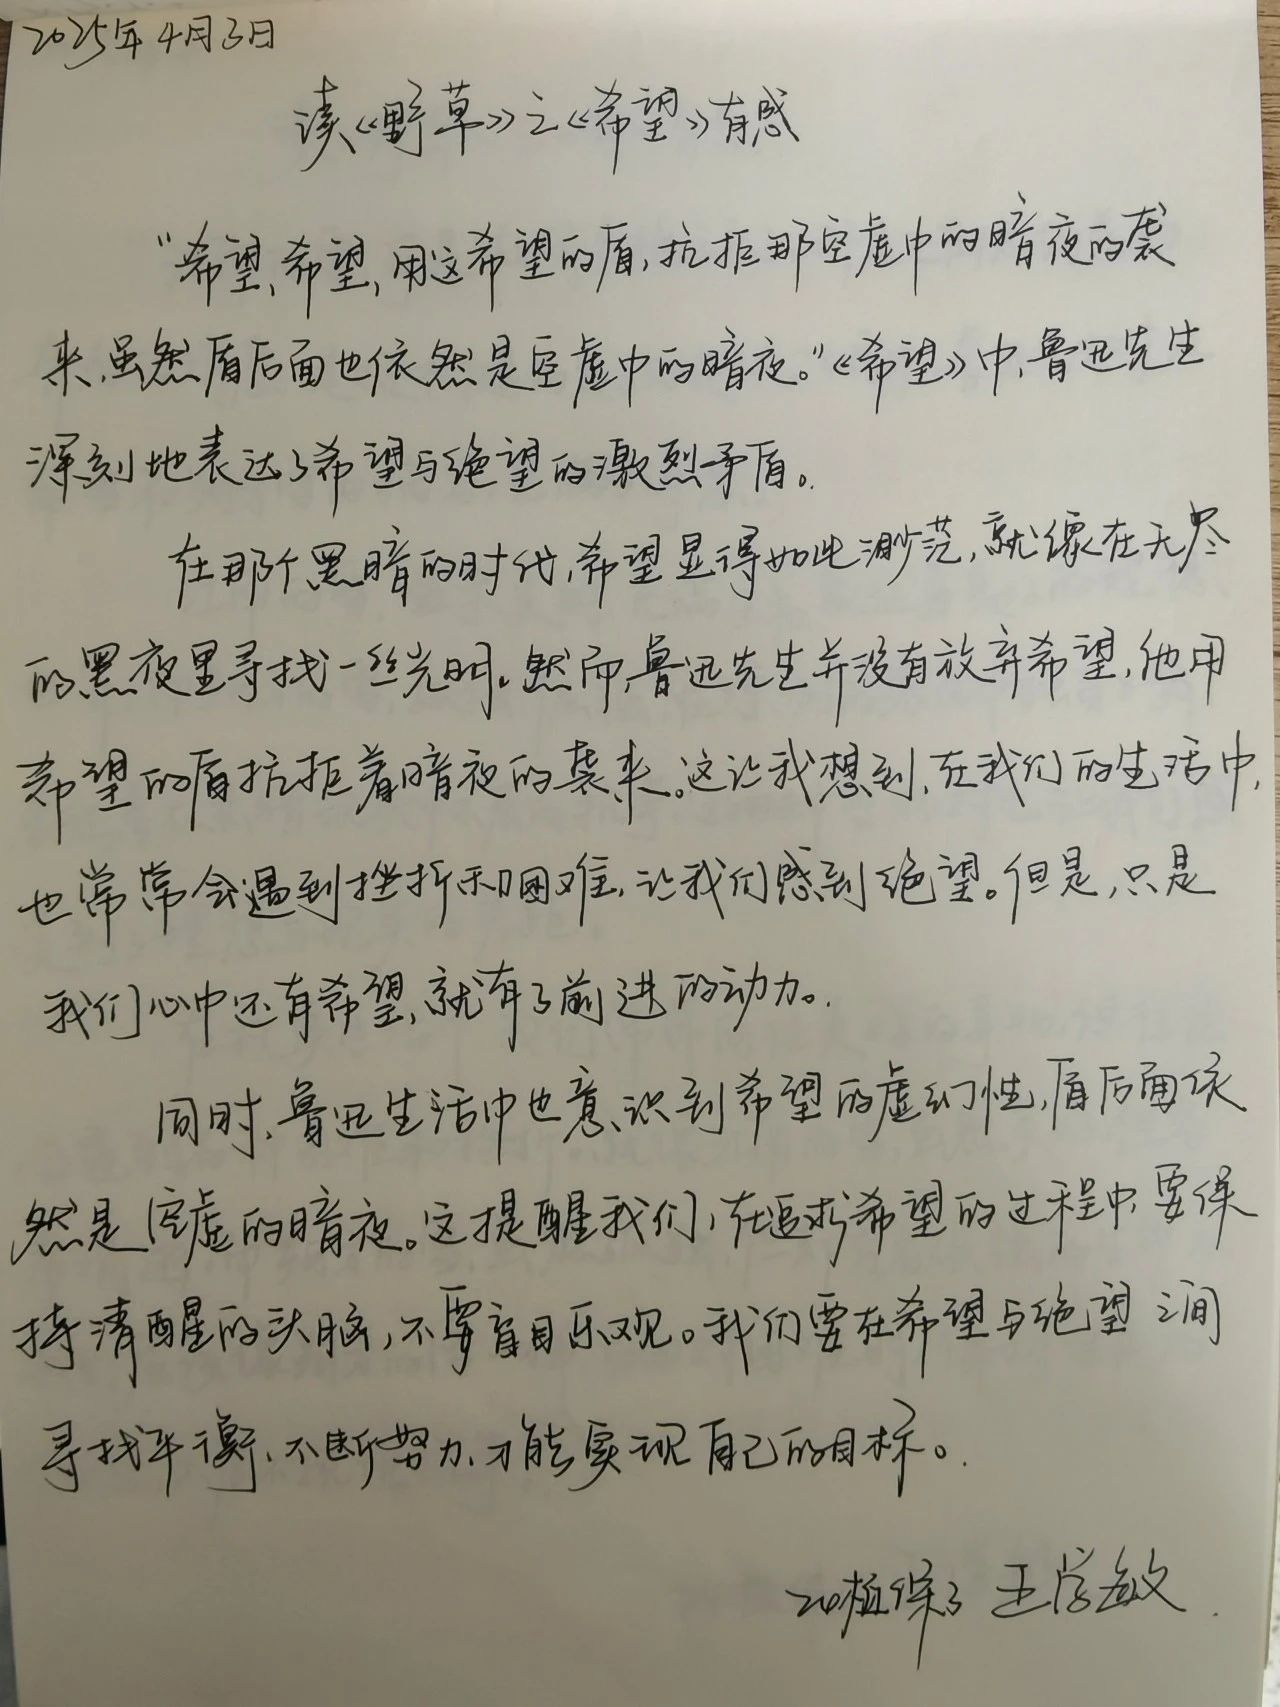 2025年4月3日
读《野草》之《希望》有感
“希望,希望,用这希望的盾,抗拒那空虚中的暗夜的袭
来,虽然盾后面也依然是空虚中的暗夜。”《希望》中,鲁迅先生
深刻地表达了希望与绝望的激烈矛盾。
在那个黑暗的时代,希望显得如此渺茫,就像在无尽
的黑夜里寻找一丝光明。然而,鲁迅先生并没有放弃希望,他用
希望的盾抗拒着暗夜的袭来。这让我想到,在我们的生活中,
也常常会遇到挫折和困难,让我们感到绝望。但是,只是
我们心中还有希望,就有了前进的动力。
同时,鲁迅生活中也意识到希望的虚幻性,盾后面依
然是空虚的暗夜。这提醒我们,在追求希望的过程中,要保
持清醒的头脑,不要盲目乐观。我们要在希望与绝望之间
寻找平衡,不断努力,才能实现自己的目标。
植保3 王学敏